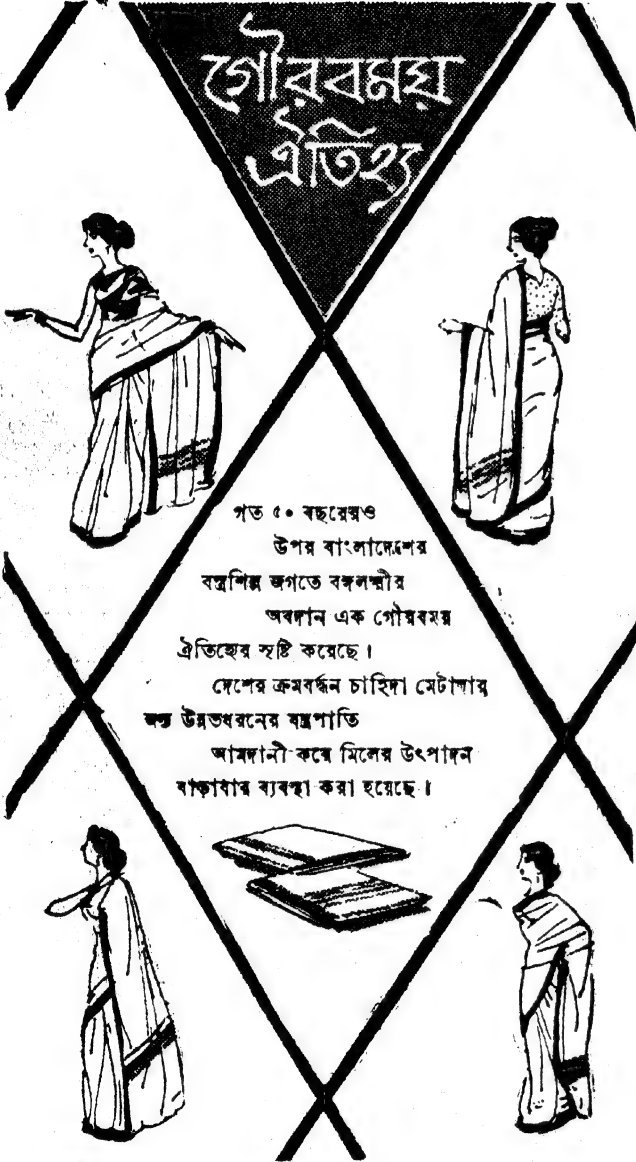 গৌরবময়
ঐতিহ্য
গত ৫০ বছরেরও
উপর বাংলাদেশের
বস্ত্রশিল্প জগতে বঙ্গলক্ষ্মীর
অবদান এক গৌরবময়
ঐতিহ্যের সৃষ্টি করেছে।
দেশের ক্রমবর্দ্ধন চাহিদা মেটাবার
জন্য উন্নতধরনের যন্ত্রপাতি
আমদানী করে মিলের উৎপাদন
বাড়াবার ব্যবস্থা করা হয়েছে।